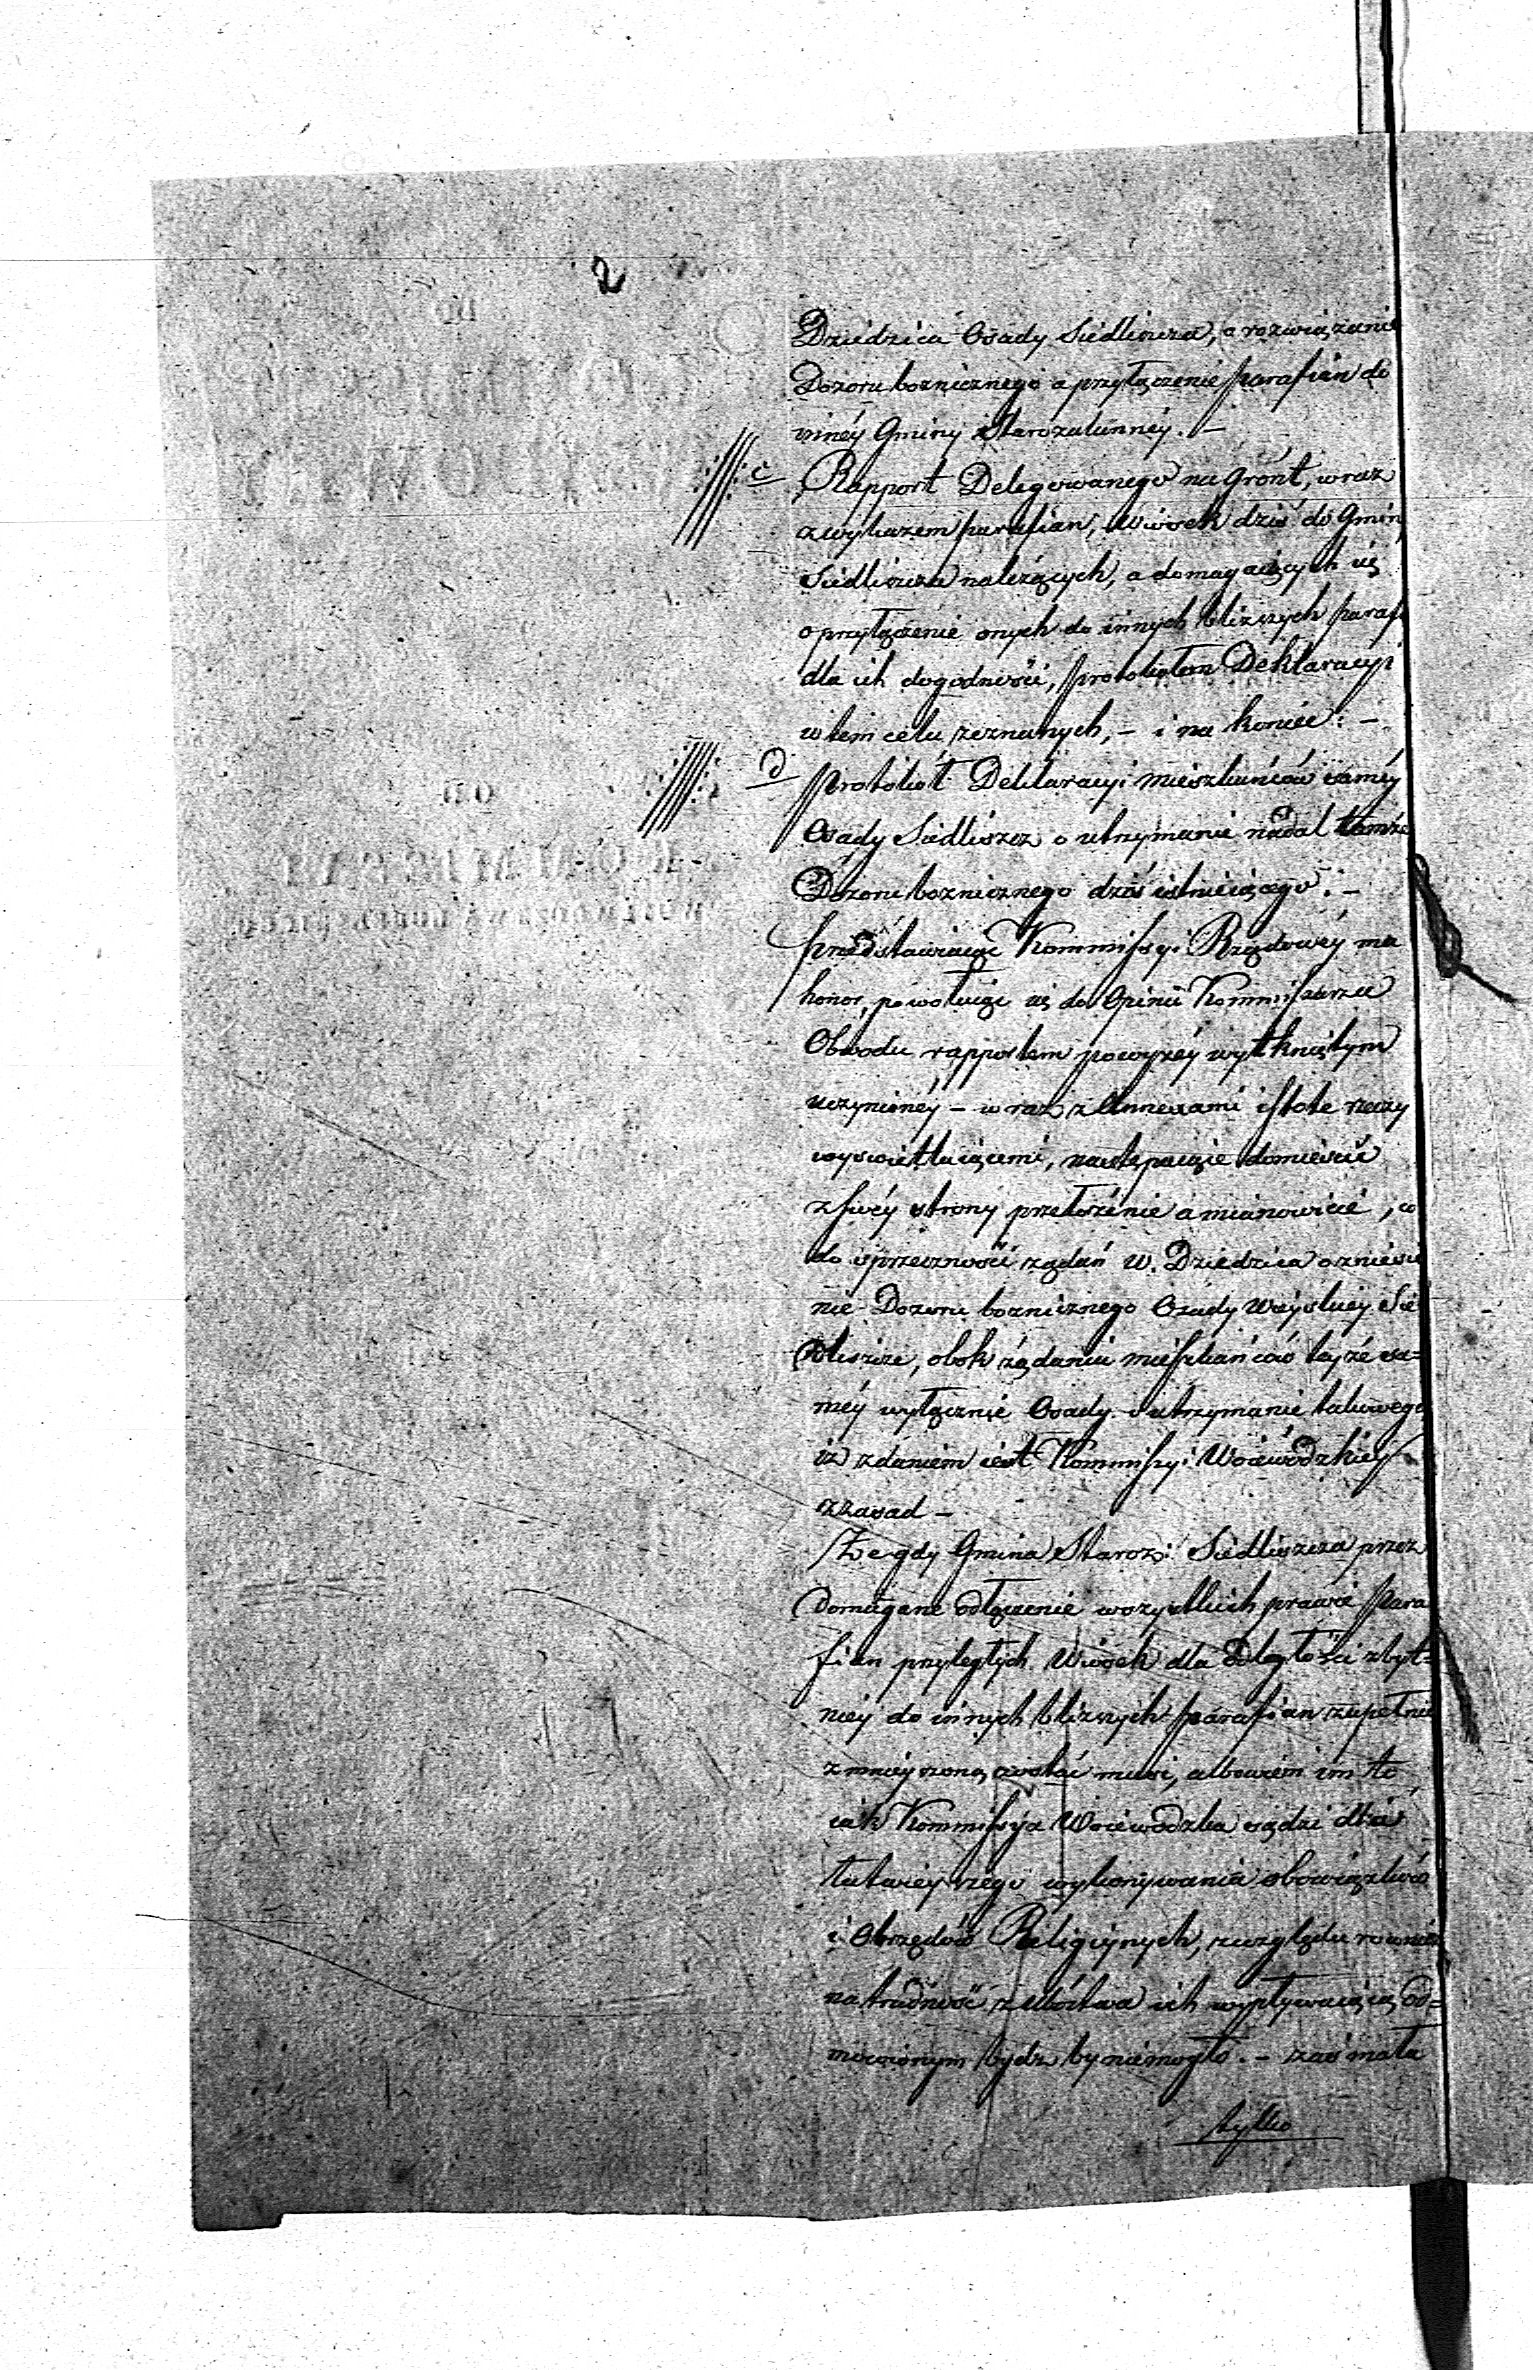 2
Dziedzica Osady Siedliszcza, o rozwiązanie
Dozoru boznicznego a przyłączenie parafian do
innéy Gminy Starozakonnéy. –
c Rapport Delegowanego na gront, wraz
z wykazem parafian, Wiosek dziś do Gminy
Siedliszcza należących, a domagaiących się
o przyłączenie onych do innych bliższych paraf
dla ich dogodności, protokołem Deklaracyi
w tem celu zeznanych, – i na koniec: –
d Protokół Deklaracyi mieszkańców saméy
Osady Siedliszcz o utrzymanie nadal tamże
Dozoru boznicznego dziś istnieiącego. –
przedstawiaiąc Kommissyi Rządowéy ma
honor, powołuiąc się do Opinii Kommissarza
Obwodu rapportem powyżéy wytkniętym
uczynionéy – wraz z Annexami istote rzeczy
wyswietlaiącemi, następuiące domieścić
z swéy strony przełożenie a mianowicie, co
do sprzeczności rządań W. Dziedzica o zniesie
nie Dozoru boznicznego Osady Wieyskiey Sie
dliszcze, obok żądania mieszkańców tejże sa=
méy wyłącznie Osady o utrzymanie takowego
iż zdaniem iest Kommissyi Woiewodzkiey
z zasad –
Że gdy Gmina Staroz: Siedliszcza przez
Domagane odłączenie wszystkich prawie Para
fian przyległych Wiosek dla odległości zbyt=
niey do innych bliższych parafian zupełnie
zmnieyszoną zostać musi, albowiem im to
iak Kommissya Woiewodzka sądzi dla
łatwieyszego wykonywania obowiązków
i Obrzędów Religiynych, zwzględu rownie
na trudność z ubóstwa ich wypływaiącą od=
mówionym bydz by niemogło. – zaś mała
tylko